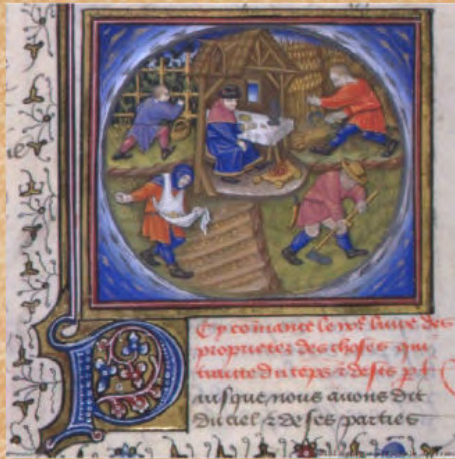 Cy comance le liure des
proprietez des choses qui
traitte du teps & de ses pt
Puisque nous auons dit
du ciel & de ses parties